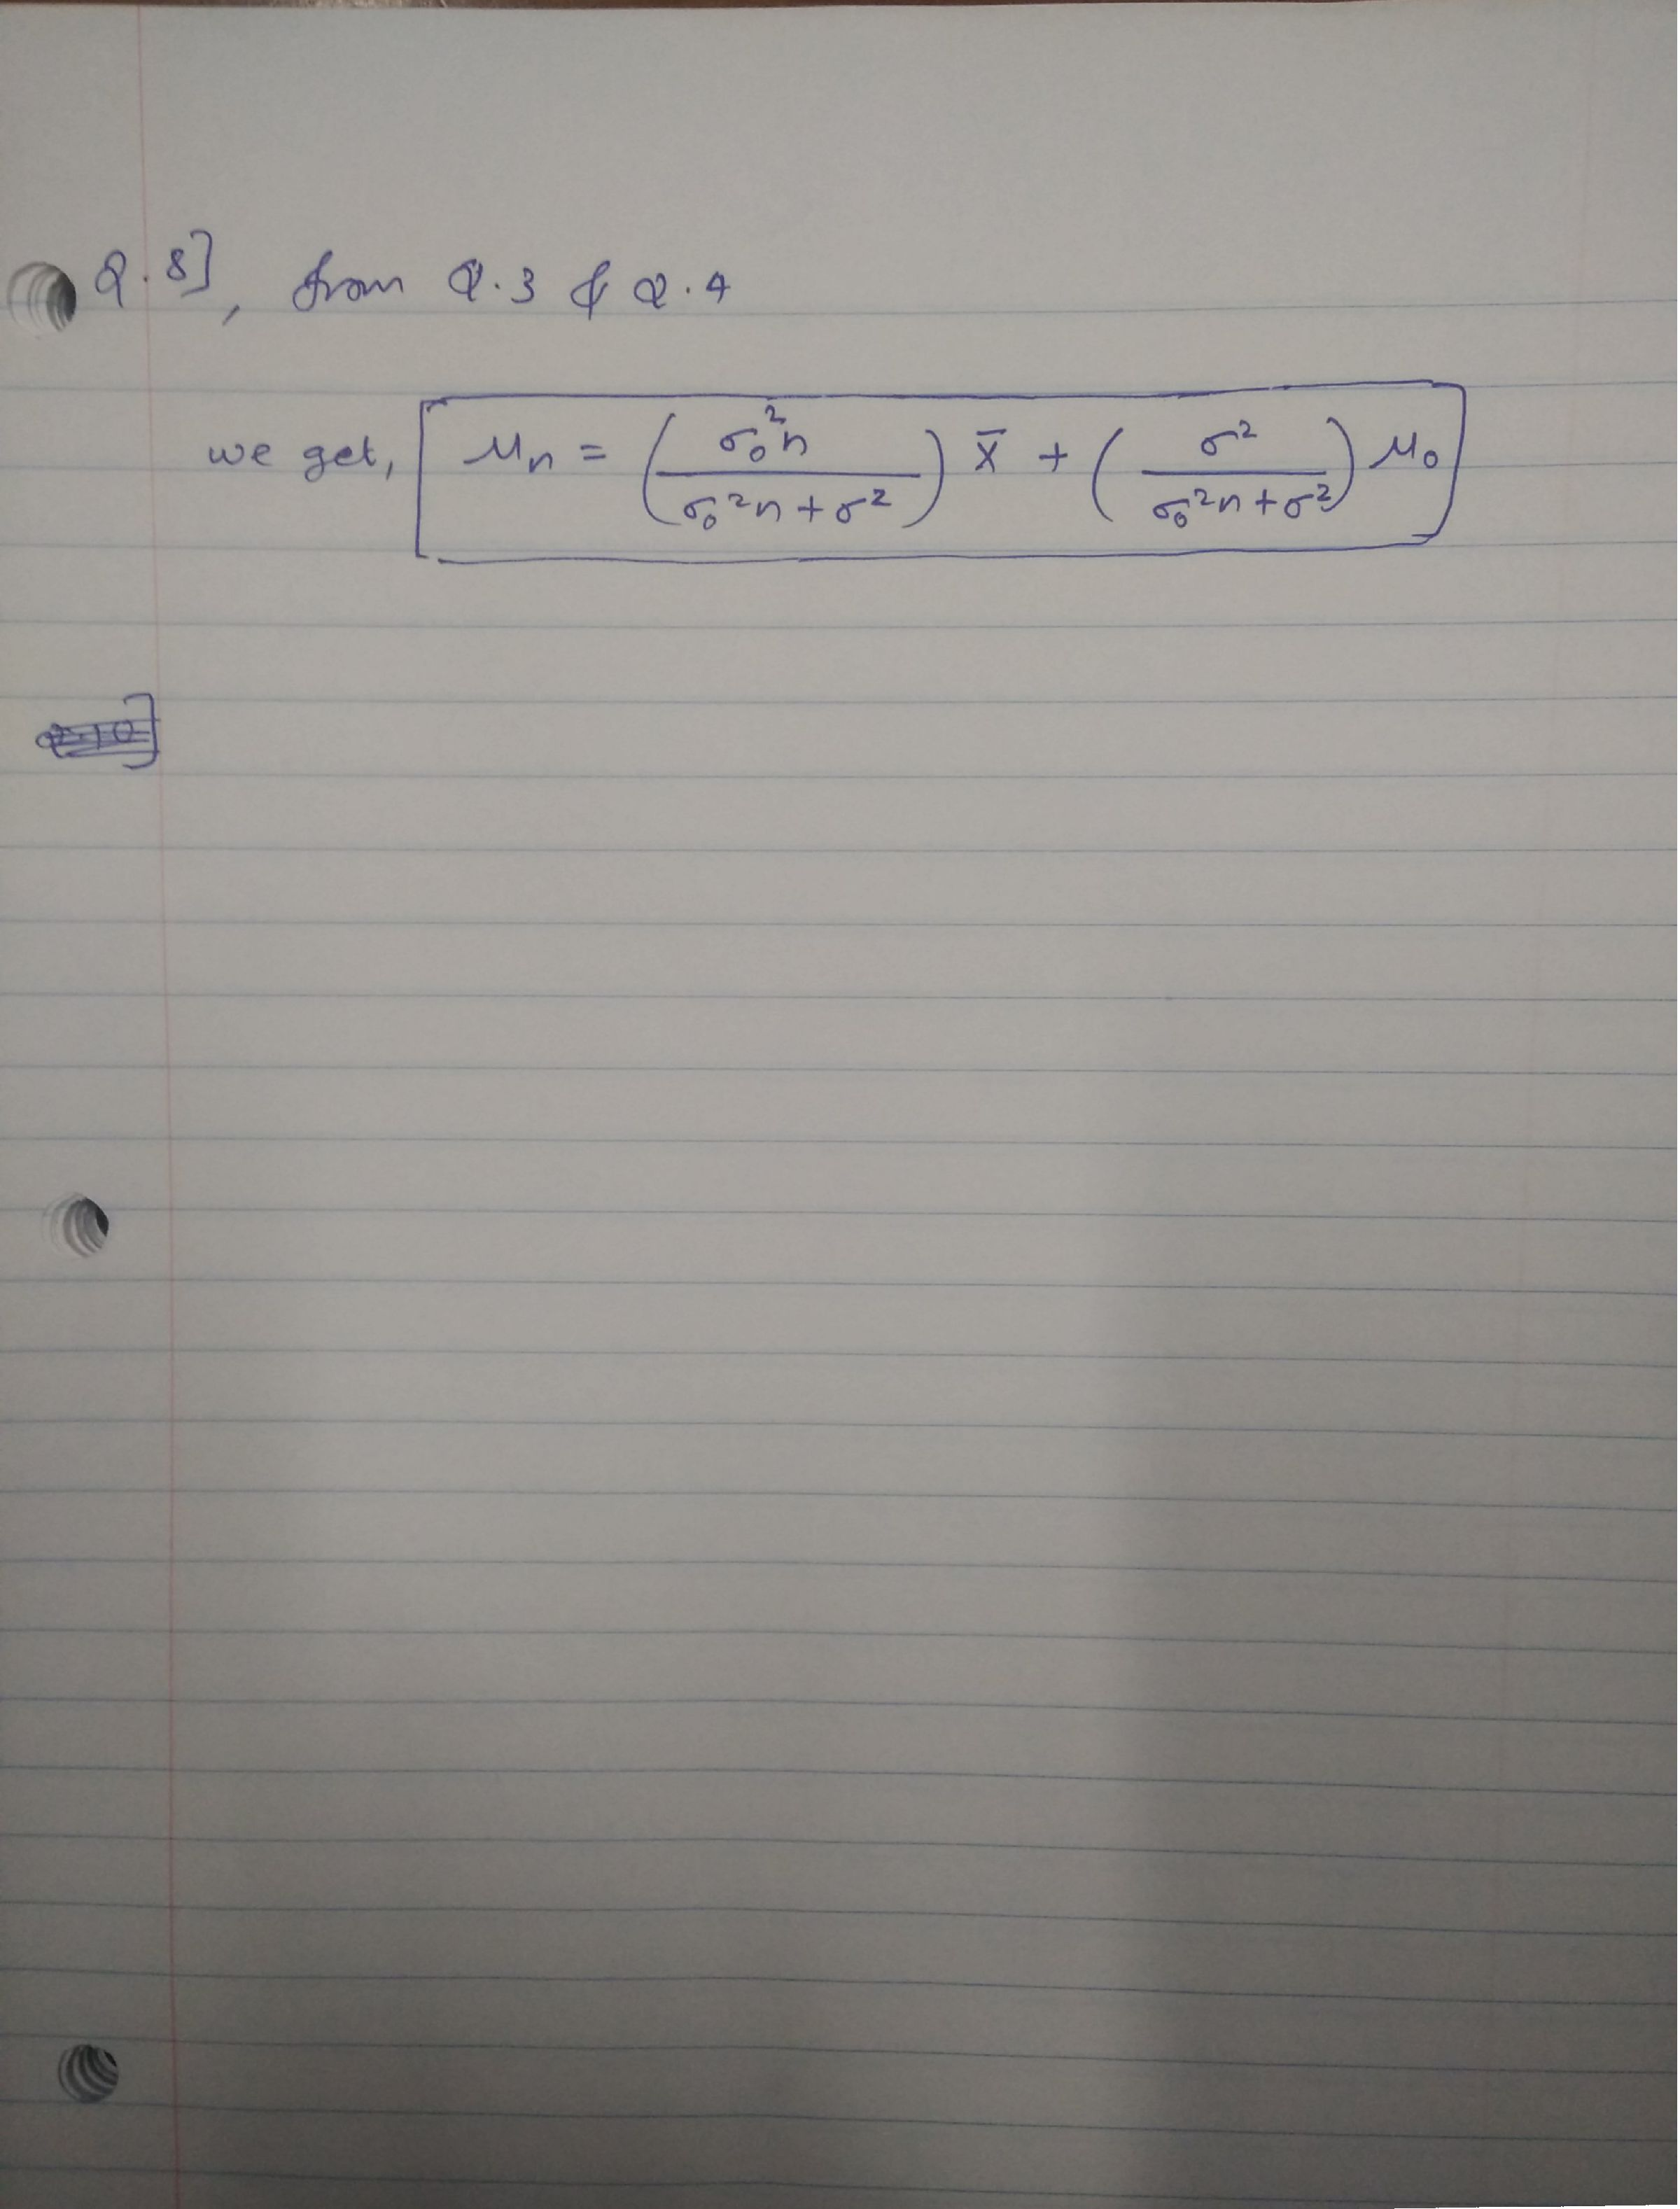 Q.8], from Q.3 & Q.4
we get, μₙ = (σ₀²n / (σ₀²n + σ²)) x̄ + (σ² / (σ₀²n + σ²)) μ₀